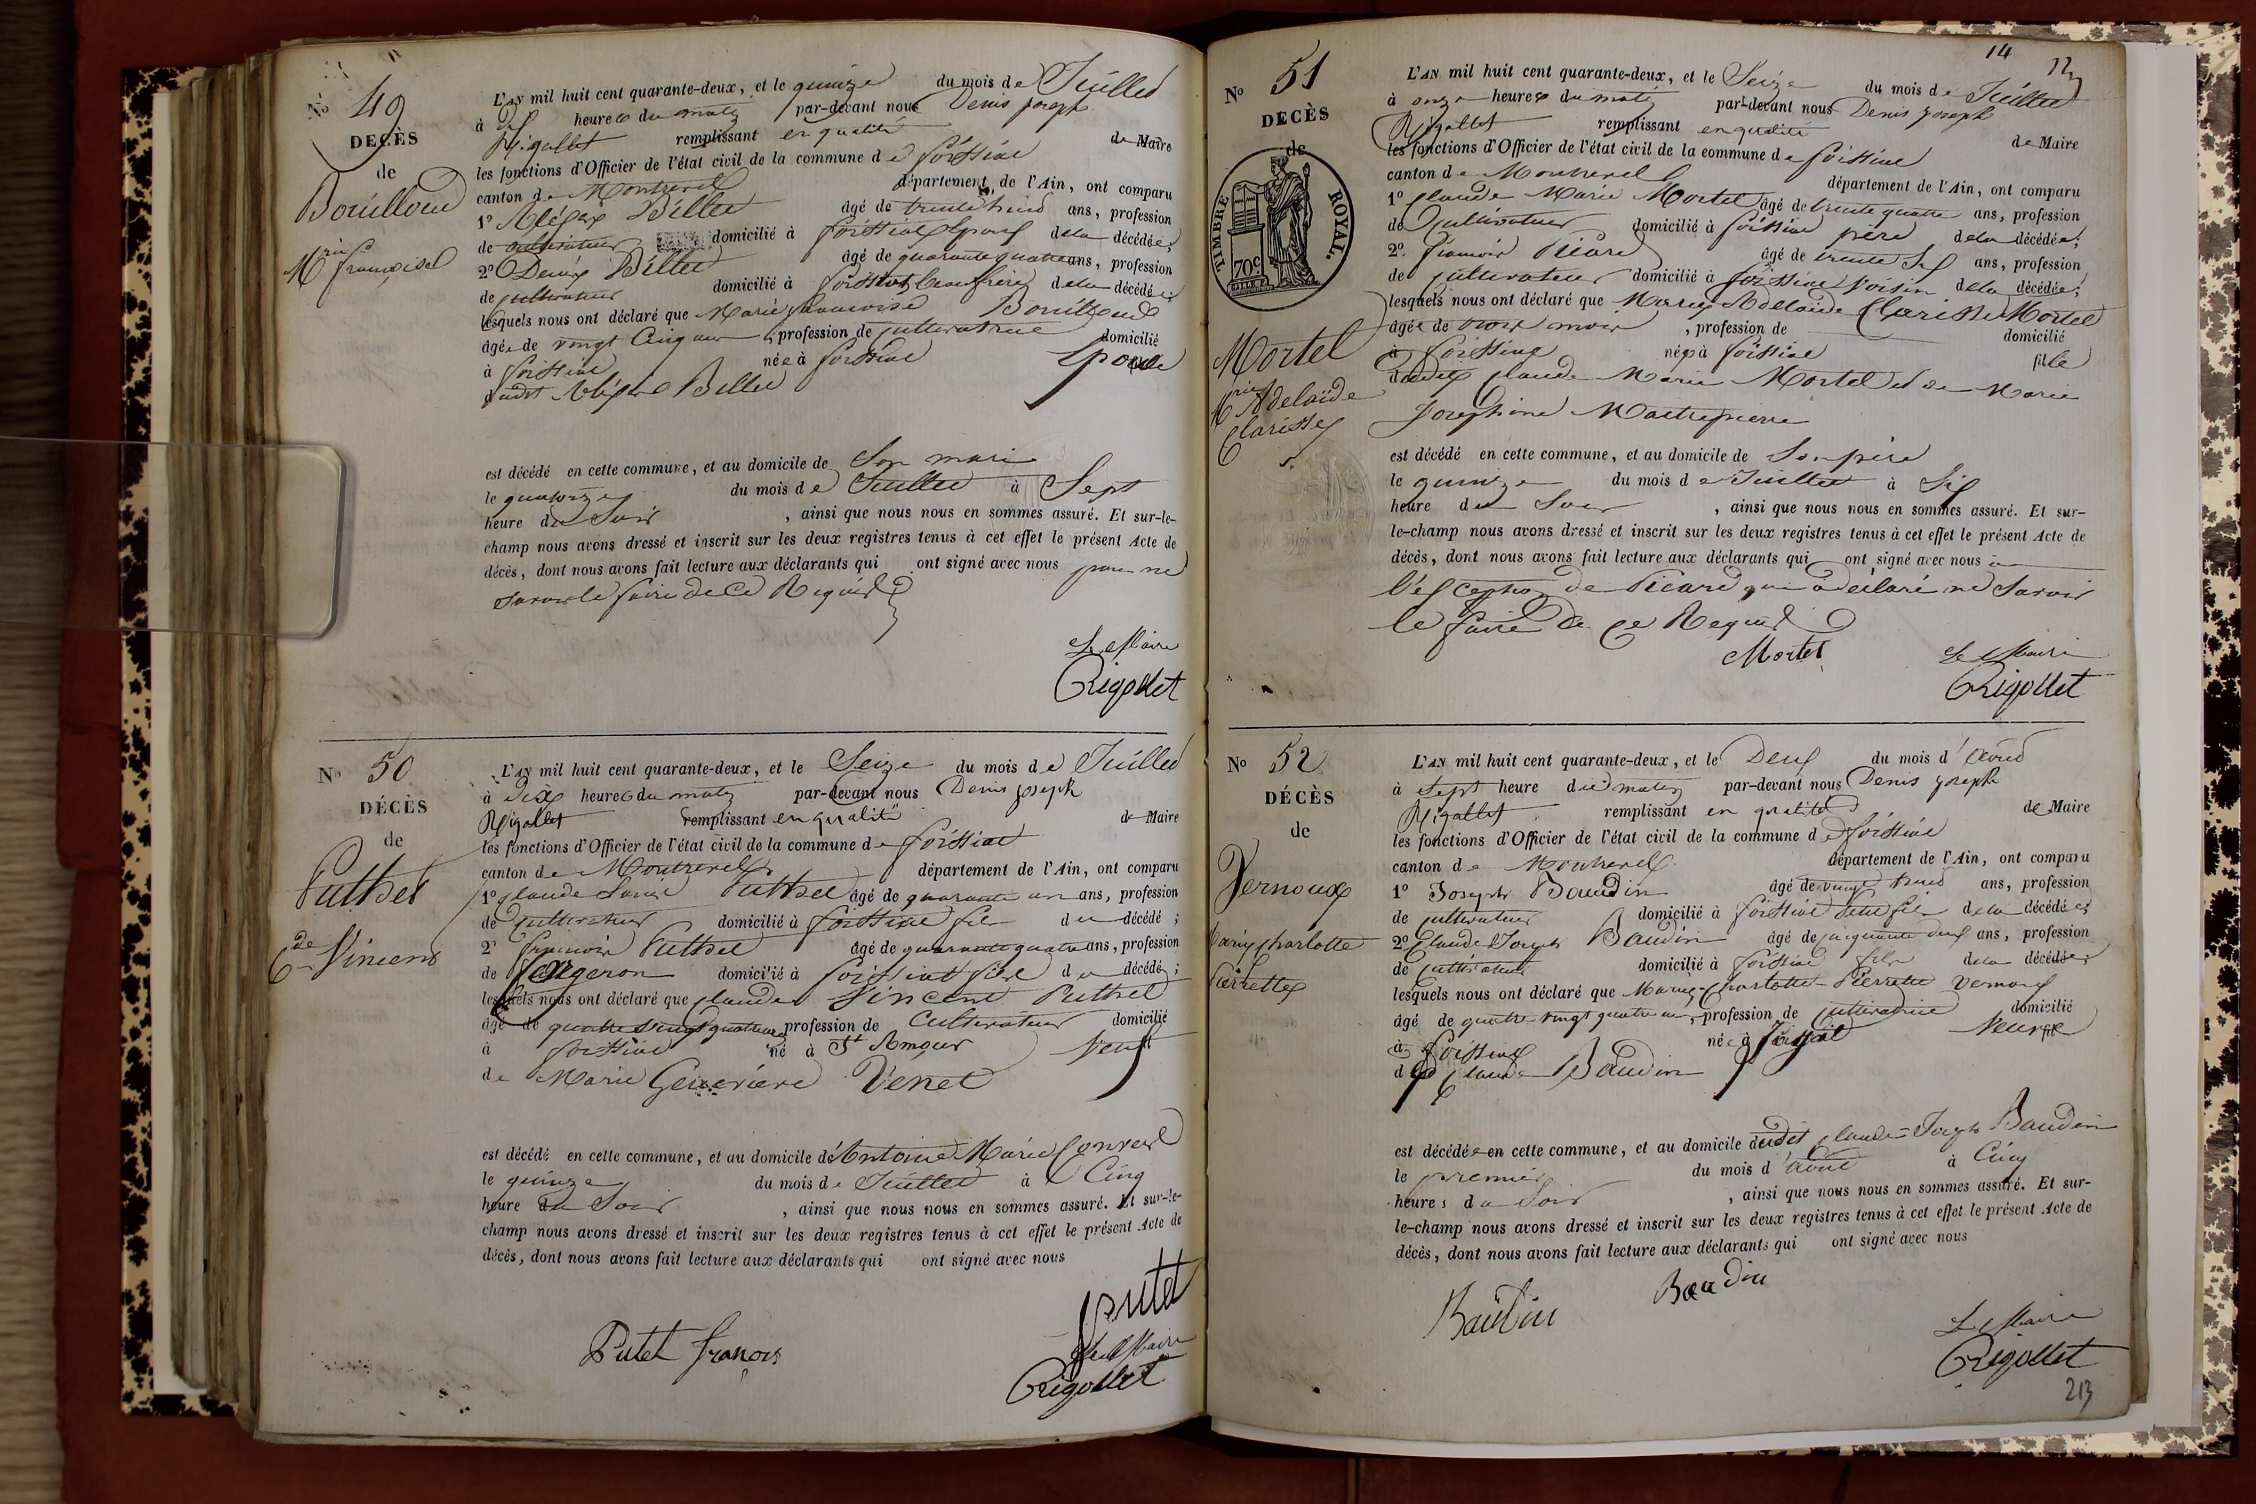 No 49
DECÈS
de
Bouilloud
Mrie françoise
L'AN mil huit cent quarante-deux, et le quinze du mois de Juillet
à dix heures du matin par-devant nous Denis Joseph
Rigollet remplissant en qualité de Maire
les fonctions d'Officier de l'état civil de la commune de foissiat
canton de Montrevel département de l'Ain, ont comparu
1º Billet âgé de trente huit ans, profession
de cultivateur domicilié à foissiat Epoux de la décédée;
2º Denis Billet âgé de quarante quatre ans, profession
de cultivateur domicilié à foissiat beaufrère de la décédée;
lesquels nous ont déclaré que Marie françoise Bouilloud
âgée de vingt cinq ans, profession de cultivatrice domicilié
à foissiat née à foissiat Epouse
dudit Billet
est décédé en cette commune, et au domicile de Son mari
le quatorze du mois de Juillet à Sept
heure du Soir, ainsi que nous nous en sommes assuré. Et sur-le-
champ nous avons dressé et inscrit sur les deux registres tenus à cet effet le présent Acte de
décès, dont nous avons fait lecture aux déclarants qui ont signé avec nous pour ne
savoir le faire de ce Requis
Le Maire
Rigollet
No 50
DÉCÈS
de
Puthet
Cde Vincent
L'AN mil huit cent quarante-deux, et le Seize du mois de Juillet
à dix heures du matin par-devant nous Denis Joseph
Rigollet remplissant en qualité de Maire
les fonctions d'Officier de l'état civil de la commune de foissiat
canton de Montrevel département de l'Ain, ont comparu
1º Claude Puthet âgé de quarante un ans, profession
de cultivateur domicilié à foissiat fils du décédé;
2º françois Puthet âgé de quarante quatre ans, profession
de domicilié à foissiat fils du décédé;
lesquels nous ont déclaré que Claude Vincent Puthet
âgé de quatre vingt quatre ans, profession de Cultivateur domicilié
à foissiat né à St Amour Veuf
de Marie Geneviève Venet
est décédé en cette commune, et au domicile de Antoine Marie Convert
le quinze du mois de Juillet à Cinq
heure du Soir, ainsi que nous nous en sommes assuré. Et sur-le-
champ nous avons dressé et inscrit sur les deux registres tenus à cet effet le présent Acte de
décès, dont nous avons fait lecture aux déclarants qui ont signé avec nous
putet
Putet françois
Le Maire
Rigollet
14
No 51
DECÈS
de
TIMBRE ROYAL.
70c
Mortel
Mrie Adelaïde
Clarisse
L'AN mil huit cent quarante-deux, et le Seize du mois de Juillet
à onze heures du matin par-devant nous Denis Joseph
Rigollet remplissant en qualité de Maire
les fonctions d'Officier de l'état civil de la commune de foissiat
canton de Montrevel département de l'Ain, ont comparu
1º Claude Marie Mortel âgé de trente quatre ans, profession
de Cultivateur domicilié à foissiat père de la décédée;
2º françois Picard âgé de trente six ans, profession
de cultivateur domicilié à foissiat Voisin de la décédée;
lesquels nous ont déclaré que Marie Adelaïde Clarisse Mortel
âgée de trois mois, profession de domicilié
à foissiat née à foissiat fille
dudit Claude Marie Mortel et de Marie
Josephine Maitrepierre
est décédé en cette commune, et au domicile de Son père
le quinze du mois de Juillet à Six
heure du Soir, ainsi que nous nous en sommes assuré. Et sur-
le-champ nous avons dressé et inscrit sur les deux registres tenus à cet effet le présent Acte de
décès, dont nous avons fait lecture aux déclarants qui ont signé avec nous à
l'exception de Picard qui a déclaré ne Savoir
le faire de ce Requis
Mortel
Le Maire
Rigollet
No 52
DÉCÈS
de
Vernoux
Marie Charlotte
Pierrette
L'AN mil huit cent quarante-deux, et le Deux du mois d'août
à sept heure du matin par-devant nous Denis Joseph
Rigollet remplissant en qualité de Maire
les fonctions d'Officier de l'état civil de la commune de foissiat
canton de Montrevel département de l'Ain, ont comparu
1º Joseph Baudin âgé de vingt huit ans, profession
de cultivateur domicilié à foissiat petit fils de la décédée;
2º Claude Joseph Baudin âgé de cinquante deux ans, profession
de cultivateur domicilié à foissiat fils de la décédée
lesquels nous ont déclaré que Marie Charlotte Pierrette Vernoux
âgé de quatre vingt quatre ans, profession de cultivatrice domicilié
à foissiat née à foissiat Veuve
de Claude Baudin
est décédée en cette commune, et au domicile dudit Claude Joseph Baudin
le premier du mois d'août à Cinq
heures du Soir, ainsi que nous nous en sommes assuré. Et sur-
le-champ nous avons dressé et inscrit sur les deux registres tenus à cet effet le présent Acte de
décès, dont nous avons fait lecture aux déclarants qui ont signé avec nous
Baudin Baudin
Le Maire
Rigollet
213